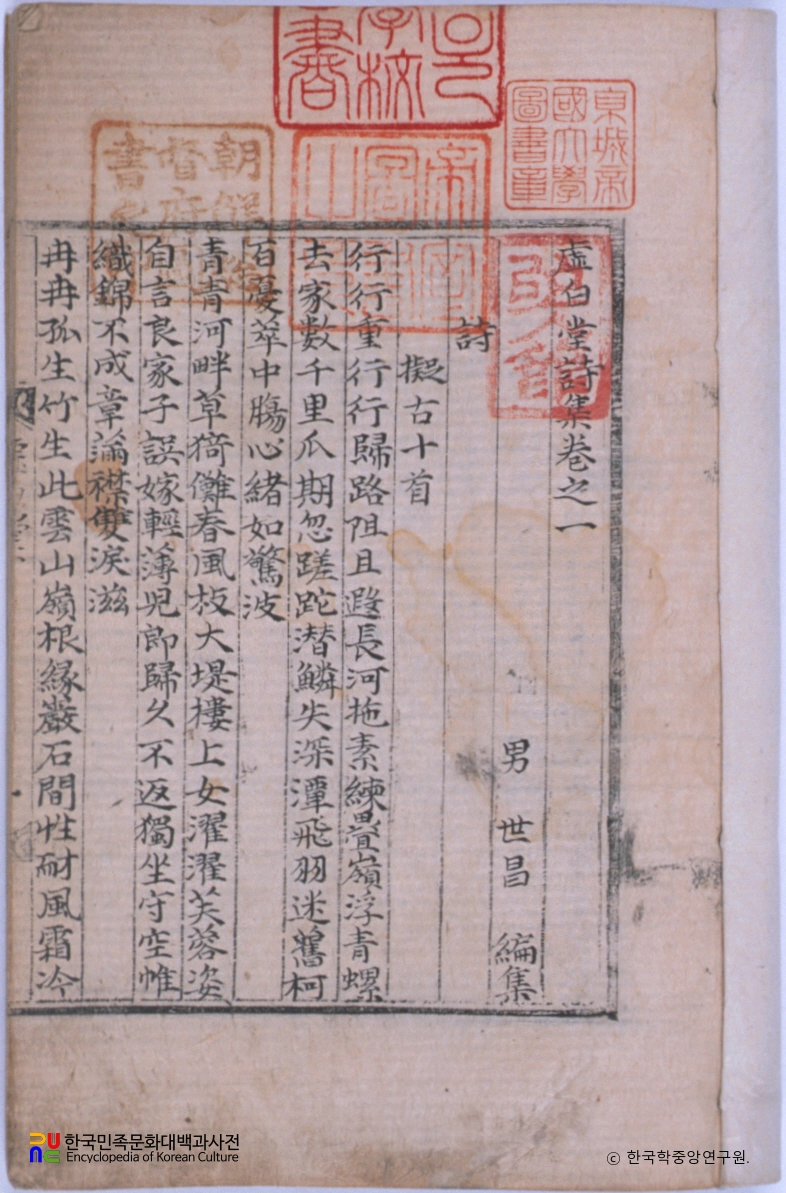 虛白堂詩集卷之一
男 世昌 編集
詩
擬古十首
行行重行行歸路阻且遐長河拖素練疊嶺浮青螺
去家數千里瓜期忽蹉跎潛鱗失深潭飛羽迷舊柯
百憂萃中膓心緒如驚波
青青河畔草猗儺春風枝大堤樓上女濯濯芙蓉姿
自言良家子誤嫁輕薄児郎歸久不返獨坐守空帷
織錦不成章論襟雙淚滋
冉冉孤生竹生此雲山嶺根緣巖石間性耐風霜冷
東城帝
國大學
圖書章
朝鮮
督府
書
한국민족문화대백과사전
Encyclopedia of Korean Culture
ⓒ 한국학중앙연구원.